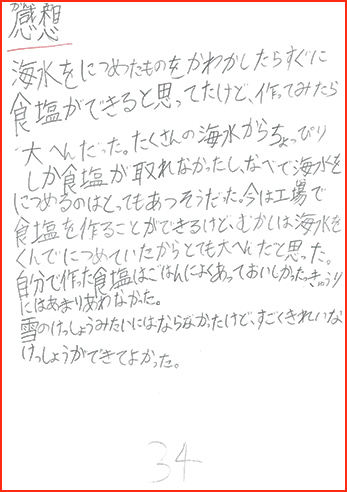 かんそう
感想
海水をにつめたものをかわかしたらすぐに
食塩ができると思ってたけど、作ってみたら
大へんだった。たくさんの海水からちょっぴり
しか食塩が取れなかったし、なべで海水を
につめるのはとってもあつそうだった。今は工場で
食塩を作ることができるけど、むかしは海水を
くんでにつめていたからとても大へんだと思った。
自分で作った食塩はごはんによくあっておいしかった。きゅうり
にはあまりあわなかった。
雪のけっしょうみたいにはならなかったけど、すごくきれいな
けっしょうができてよかった。
34